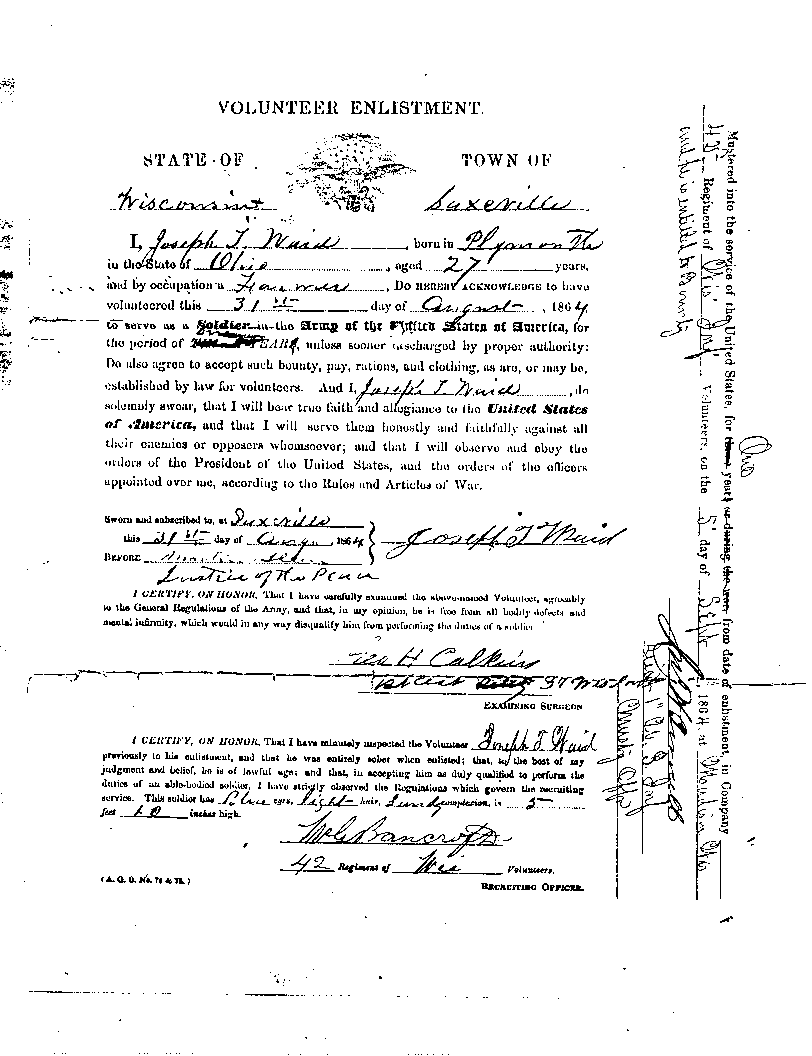 VOLUNTEER ENLISTMENT.
STATE OF TOWN OF
Wisconsin Saxeville
I, Joseph T. Waid, born in Plymouth
in the State of Ohio, aged 27 years,
and by occupation a Farmer, Do HEREBY ACKNOWLEDGE to have
volunteered this 31st day of August, 1864,
to serve as a Soldier in the Army of the United States of America, for
the period of YEAR, unless sooner discharged by proper authority:
Do also agree to accept such bounty, pay, rations, and clothing, as are, or may be,
established by law for volunteers. And I, Joseph T. Waid, do
solemnly swear, that I will bear true faith and allegiance to the United States
of America, and that I will serve them honestly and faithfully against all
their enemies or opposers whomsoever; and that I will observe and obey the
orders of the President of the United States, and the orders of the officers
appointed over me, according to the Rules and Articles of War.
Sworn and subscribed to, at Saxeville
this 31st day of Augu, 1864 Joseph T Waid
BEFORE
Justice of the Peace
I CERTIFY, ON HONOR, That I have carefully examined the above-named Volunteer, agreeably
to the General Regulations of the Army, and that, in my opinion, he is free from all bodily defects and
mental infirmity, which would in any way disqualify him from performing the duties of a soldier.
H Calkins
37 Wis
EXAMINING SURGEON
I CERTIFY, ON HONOR, That I have minutely inspected the Volunteer Joseph T. Waid
previously to his enlistment, and that he was entirely sober when enlisted; that, to the best of my
judgment and belief, he is of lawful age; and that, in accepting him as duly qualified to perform the
duties of an able-bodied soldier, I have strictly observed the Regulations which govern the recruiting
service. This soldier has Blue eyes, light hair, Sandy complexion, is 5
feet 10 inches high.
Bancroft
42 Regiment of Wis Volunteers,
RECRUITING OFFICER.
(A. G. O. No. 74 & 75.)
Mustered into the service of the United States, for One years or during the war from date of enlistment, in Company
42 Regiment of Wis Inf Volunteers, on the 5 day of Sept 1864, at Madison Wis
and he is entitled to Bounty
Inf
Musty Offr